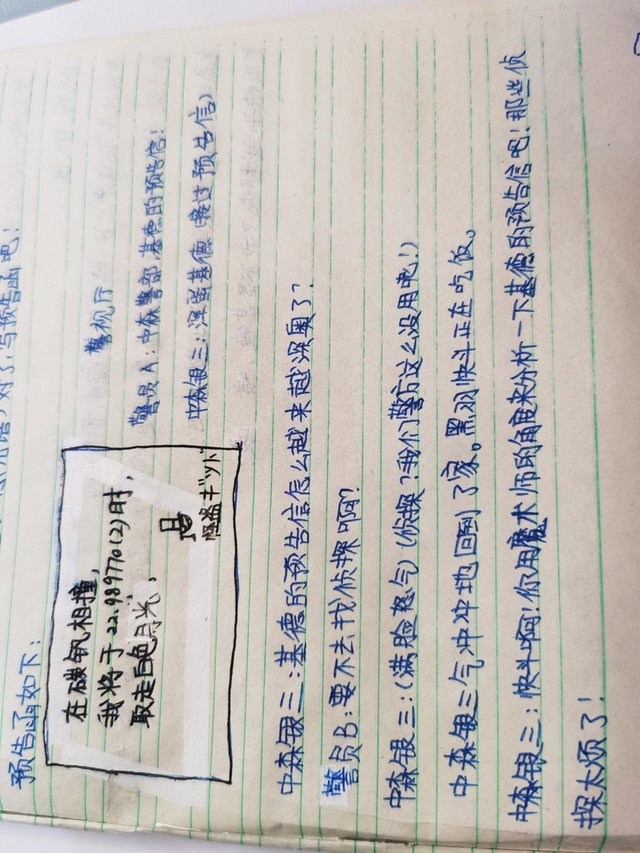 对了,写预告函吧!
预告函如下:
在碳 相撞,
我将于22.989770(2)时,
取走白色月光.
怪盗ギッド
警视厅
警员A:中森警部,基德的预告信!
中森银三:浑蛋基德(接过预告信)
中森银三:基德的预告信怎么越来越深奥了?
警员B:要不去找侦探啊?
中森银三:(满脸怒气)(侦探?我们警方这么没用吧!)
中森银三气冲冲地回到了家。黑羽快斗正在吃饭。
中森银三:快斗啊!你用魔术师的角度来分析一下基德的预告信吧!那些侦
探太烦了!